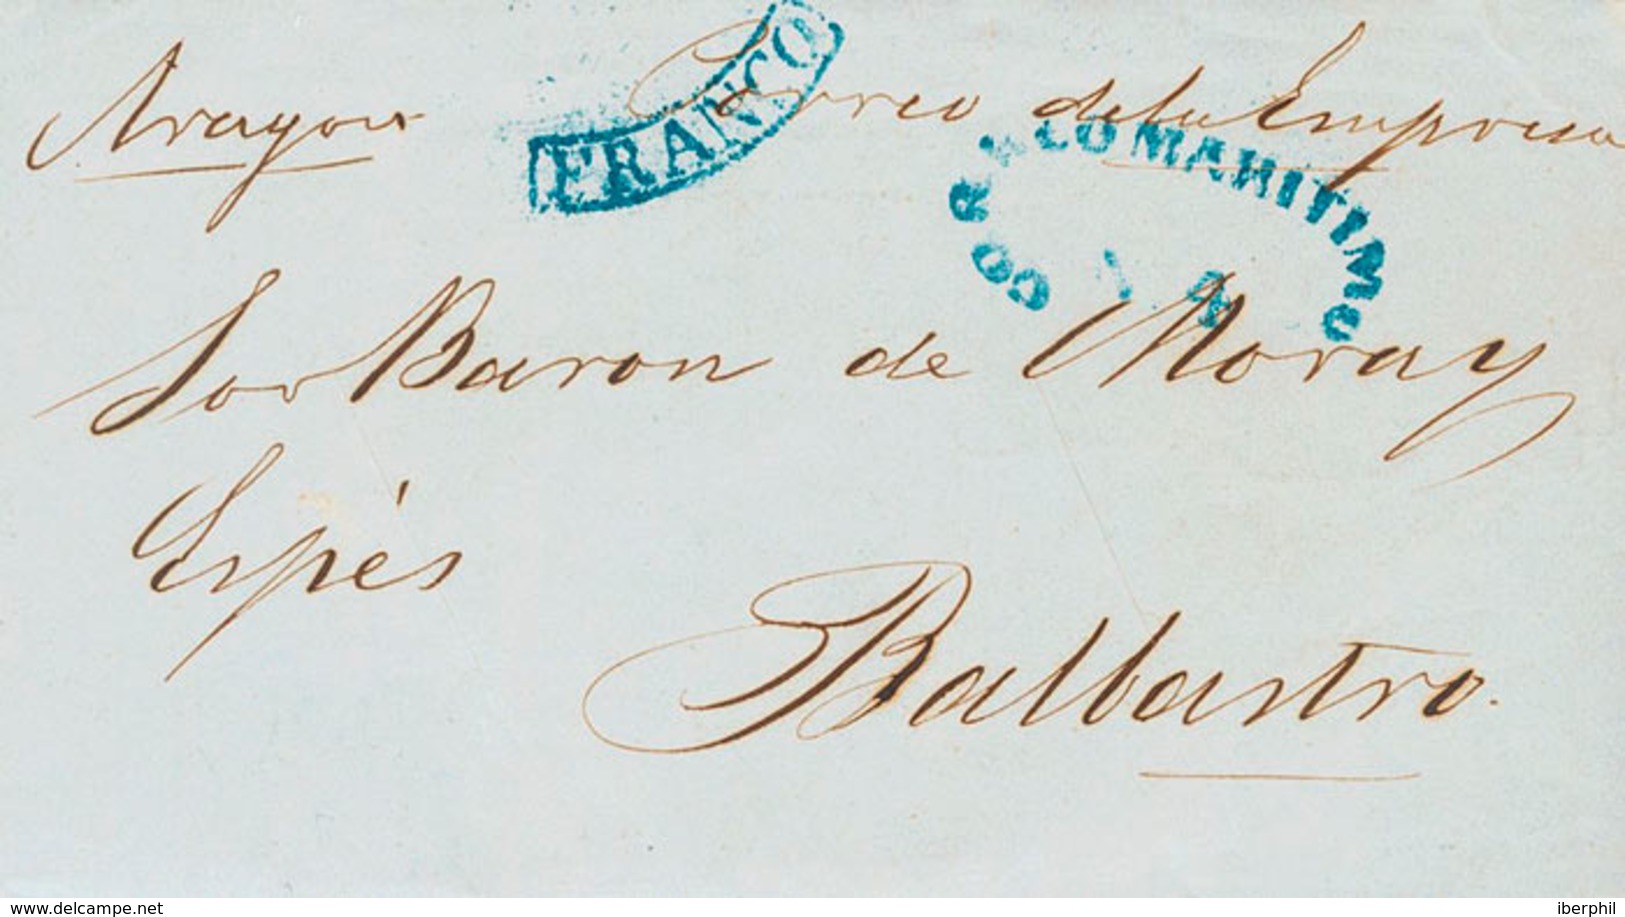 Aragon Correo de la Empresa
FRANCO
CORREO MARITIMO
Sor Baron de Moray
Espés
Balbastro.
www.delcampe.net iberphil